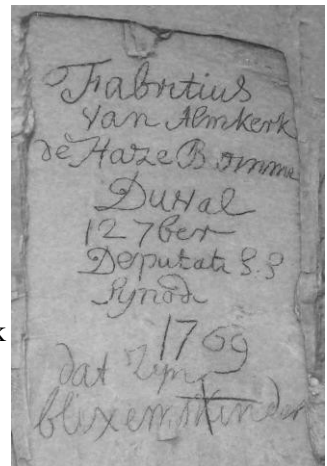 Fabritius
van Almkerk
de Haze B mme
Duval
12 7ber
Deputati S. S
Synod
1769
dat zyn
blixemskinder
k